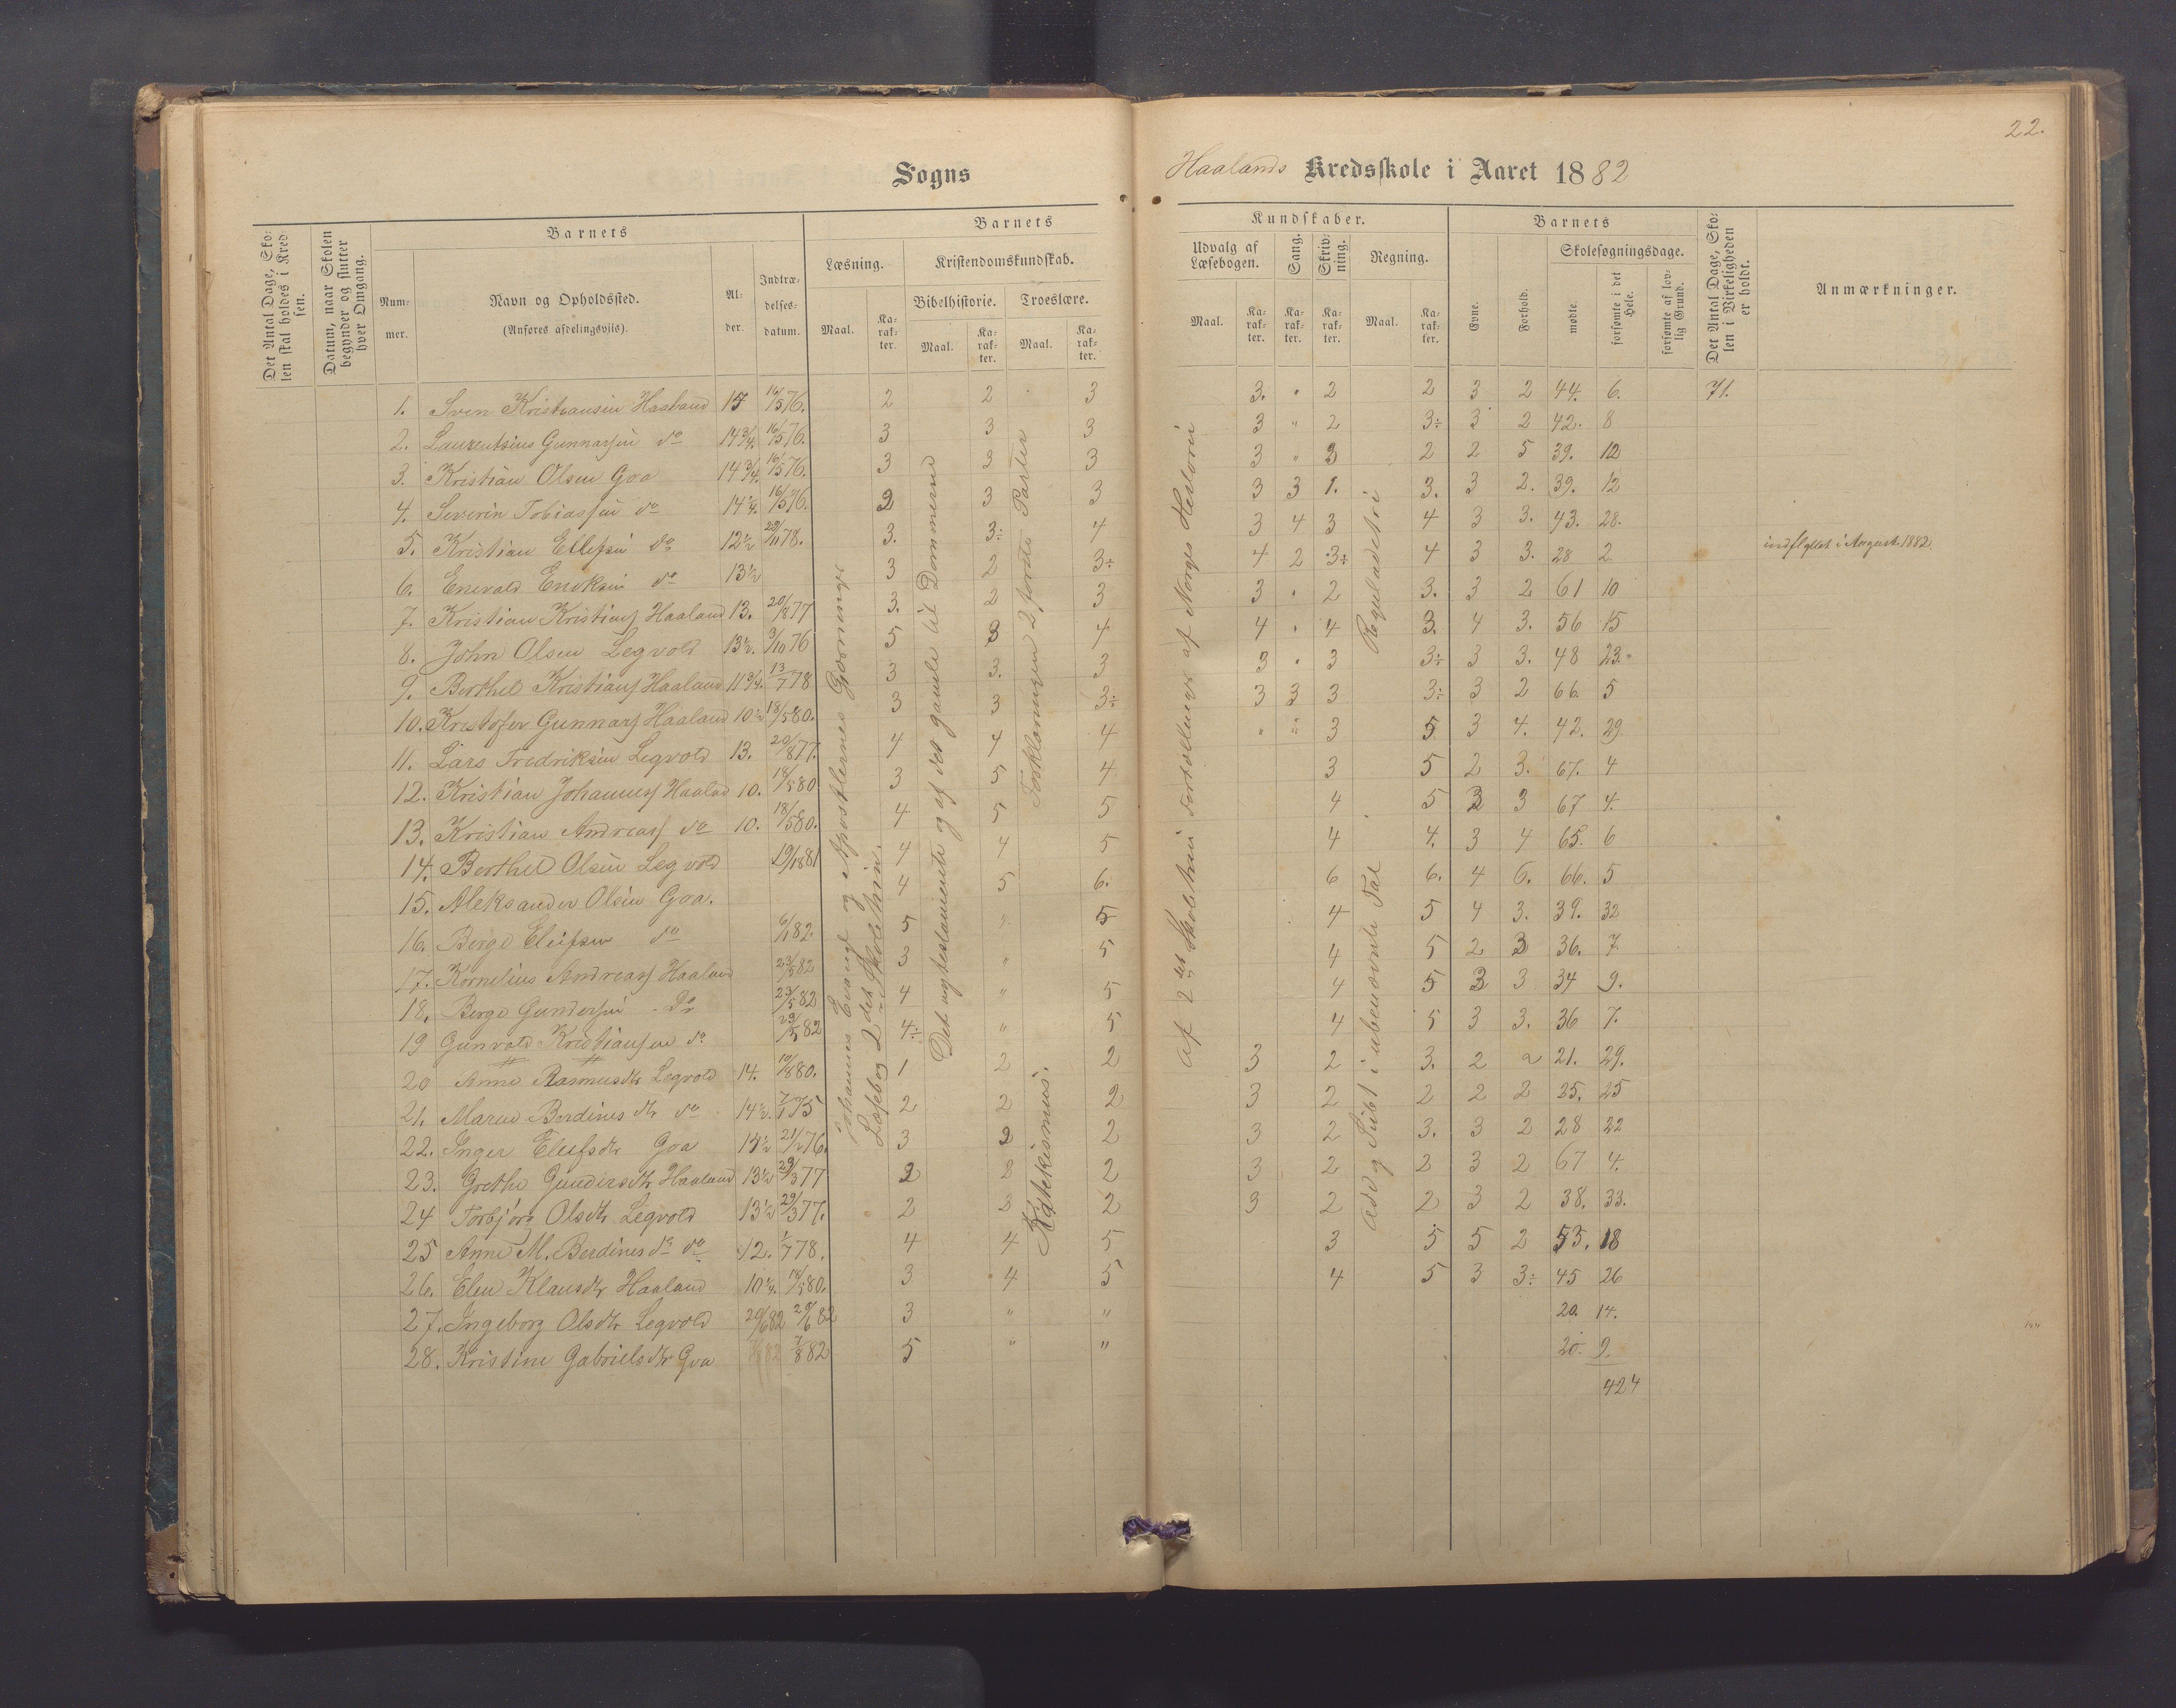 22.
Sogns
Haalands Kredsskole i Aaret 1882
Det Antal Dage, Skolen skal holdes i Kredsen.
Datum, naar Skolen begynder og slutter hver Omgang.
Barnets
Nummer.
Navn og Opholdssted.
(Anføres afdelingsviis).
Alder.
Indtrædelsesdatum.
Barnets
Læsning.
Kristendomskundskab.
Bibelhistorie. Troeslære.
Maal. Karakter. Maal. Karakter. Maal. Karakter.
Kundskaber.
Udvalg af Læsebogen. Sang. Skrivning. Regning.
Maal. Karakter. Karakter. Karakter. Maal. Karakter.
Barnets
Evne. Forhold.
Skolesøgningsdage.
mødte forsømte i det Hele. forsømte af lovlig Grund.
Det Antal Dage, Skolen i Virkeligheden er holdt.
Anmærkninger.
1. Sven Kristiansen Haaland 15 16/5 76. 2 2 3 3. " 2 2 3 2 44. 6. 71.
2. Laurentsius Gunnarsen do 14 3/4. 16/5 76. 3 3 3 3 " 2 3÷ 3 2 42. 8
3. Kristian Olsen Goa 14 3/4. 16/5 76. 3 3 3 3 " 3 2 2 5 39. 10
4. Severin Tobiassen do 14 1/4. 16/5 76. 2 3 3 3 3 1. 3. 3 2. 39. 12
5. Kristian Ellefsen do 12 1/2 29/11 78. 3. 3÷ 4 3 4 3 4 3 3. 43. 28.
6. Enevald Eriksen do 13 1/2 3 2 3÷ 4 2 3÷ 4 3 3. 28 2 indflyttet i August 1882.
7. Kristian Kristians Haaland 13. 20/8 77 3. 2 3 3 " 2 3. 3 2 61 10
8. John Olsen Legvold 13 1/2. 3/10 76 5 3 4 4 " 4 3. 4 3. 56 15
9. Berthel Kristians Haaland 11 3/4. 13/7 78 3 3. 3 3 " 3 3÷ 3 3. 48 23.
10. Kristofer Gunnars Haaland 10 1/2 18/5 80. 3 3 3÷ 3 3 3 3÷ 3 2 66. 5
11. Lars Fredriksen Legvold 13. 20/8 77. 4 4 4 " " 3 5 3 4. 42. 29
12. Kristian Johannes Haaland 10. 18/5 80 3 5 4 3 5 2 3. 67. 4
13. Kristian Andreas do 10. 18/5 80. 4 5 5 4 5 3 3 67 4.
14. Berthel Olsen Legvold 19/1 881 4 4 5 4 4. 3 4 65. 6
15. Aleksander Olsen Goa. 4 5 6. 6 6. 4 6. 66. 5
16. Børge Eleifsen do 6/1 82. 5 " 5 4 5 4 3. 39. 32
17. Kornelius Andreas Haaland 23/5 82 3 " 5 4 5 2 3 36. 7.
18. Børge Gundersen Do 23/5 82 4 " 5 4 5 3 3 34 9.
19 Gunvald Kristiansen do 23/5 82 4÷ " 5 4 5 3 3. 36 7.
20 Anne Rasmusdtr Legvold 14. 10/8 80. 1 2 2 3 2 3. 2 2 21. 29.
21. Maren Berdines dtr do 14 1/2. 7/1 75 2 2 2 3 2 2 2 2 25. 25
22. Inger Eleifsdtr Goa 14 1/2 21/2 76. 3 2 2 3 2 3. 3 2 28 22
23. Grethe Gundersdtr Haaland 13 1/2 29/3 77 2 2 2 3 2 2 3 2 67 4.
24 Torbjørg Olsdtr Legvold 13 1/2 29/3 77. 2 3 2 3 2 2 3 2 38. 33.
25 Anne M. Berdines dr do 12. 1/7 78. 4 4 5 3 5 5 2 53. 18
26. Elen Klausdtr Haaland 10 1/4. 18/5 80. 3 4 5 4 5 3 3÷ 45 26
27. Ingeborg Olsdtr Legvold 20/6 82 20/6 82 3 " " 20. 14.
28. Kristine Gabrielsdtr Goa 7/8 82 5 " " 20. 9.
424
Johannes Evangl og Apostlernes Gjerninger
Læsebog 2det Skoletrin.
Det nytestamente og af det gamle til Dommerne
Forklaringen 2 første Parter
Katekismus.
Af 2det Skoletrin Fortællinger af Norges Historie
Reguladetri
Add og Subt i ubenævnte Tal